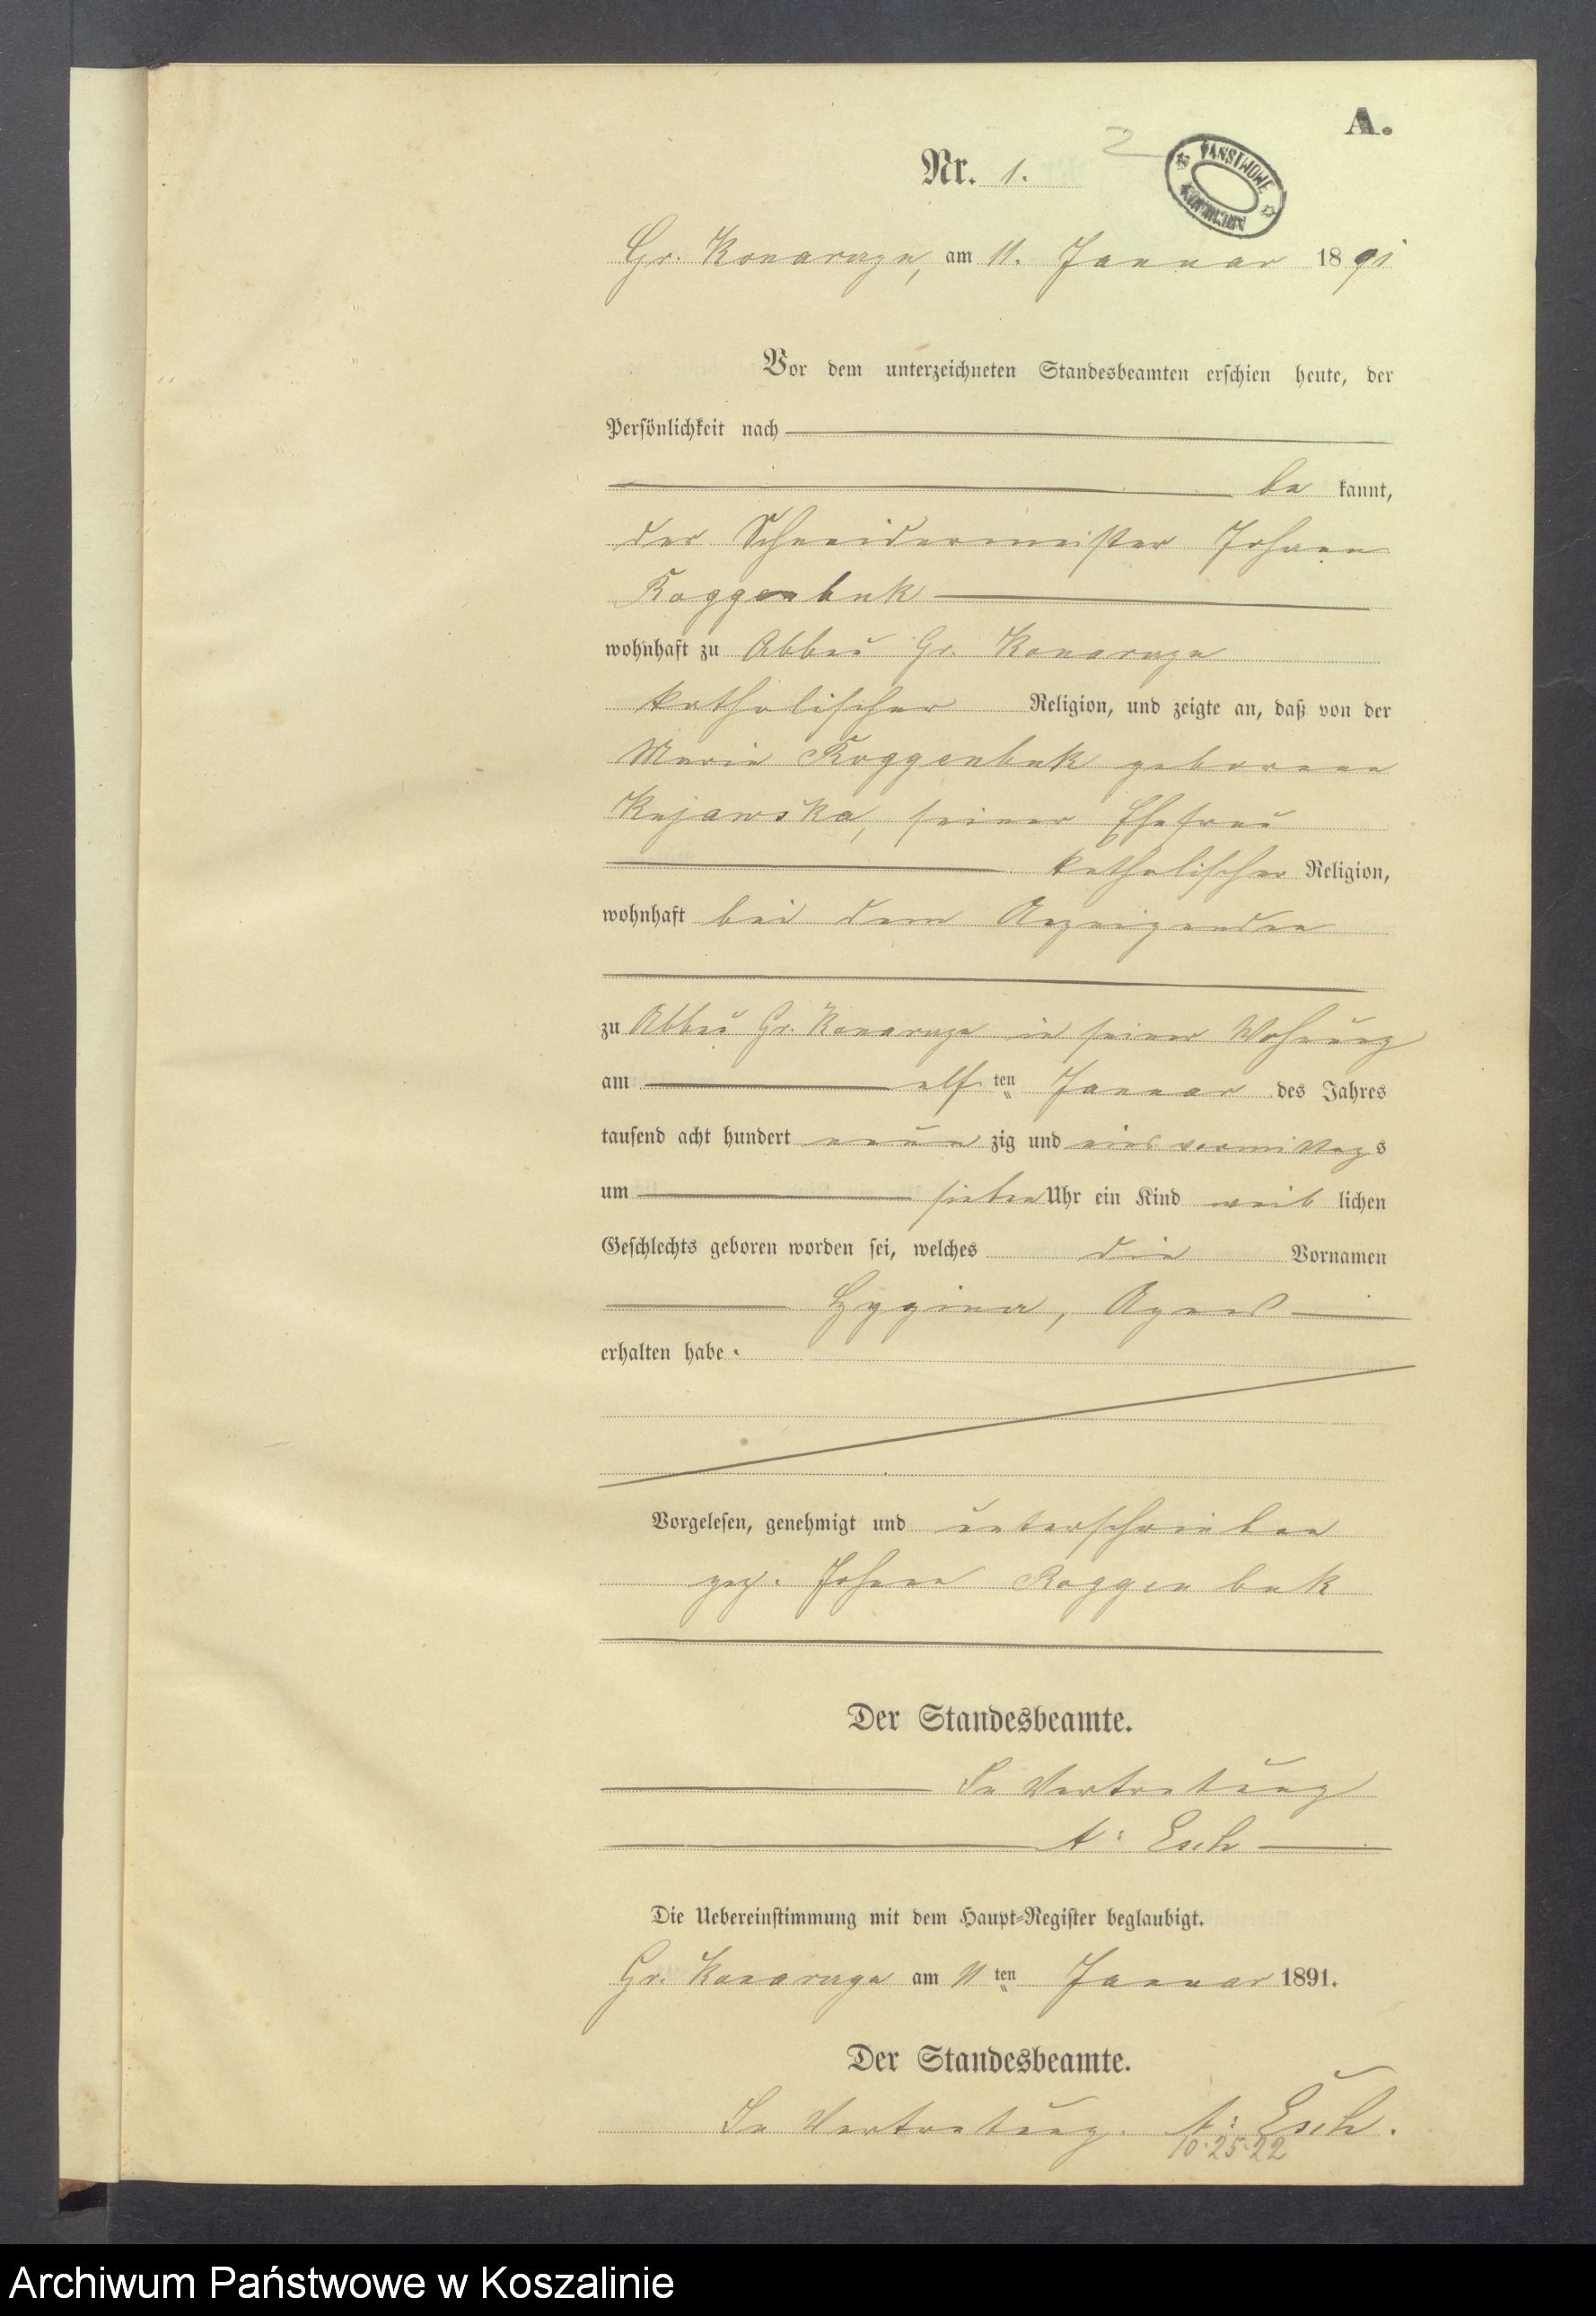 A.
Nr. 1.
2
PAŃSTWOWE ARCHIWUM
Gr. Konarzyn, am 11. Januar 1891
Vor dem unterzeichneten Standesbeamten erschien heute, der
Persönlichkeit nach
be kannt,
der Schneidermeister Johann
Roggenbuk
wohnhaft zu Abbau Gr. Konarzyn
katholischer Religion, und zeigte an, daß von der
Marie Roggenbuk geborene
Kujawska, seiner Ehefrau
katholischer Religion,
wohnhaft bei dem Anzeigenden
zu Abbau Gr. Konarzyn in seiner Wohnung
am elf ten Januar des Jahres
tausend acht hundert neun zig und eins vormittags
um sieben Uhr ein Kind weib lichen
Geschlechts geboren worden sei, welches die Vornamen
Hygina, Agnes
erhalten habe.
Vorgelesen, genehmigt und unterschrieben
gez. Johann Roggenbuk
Der Standesbeamte.
In Vertretung
A: Esch
Die Uebereinstimmung mit dem Haupt-Register beglaubigt.
Gr. Konarzyn am 11 ten Januar 1891.
Der Standesbeamte.
In Vertretung. A: Esch.
10.25.22
Archiwum Państwowe w Koszalinie